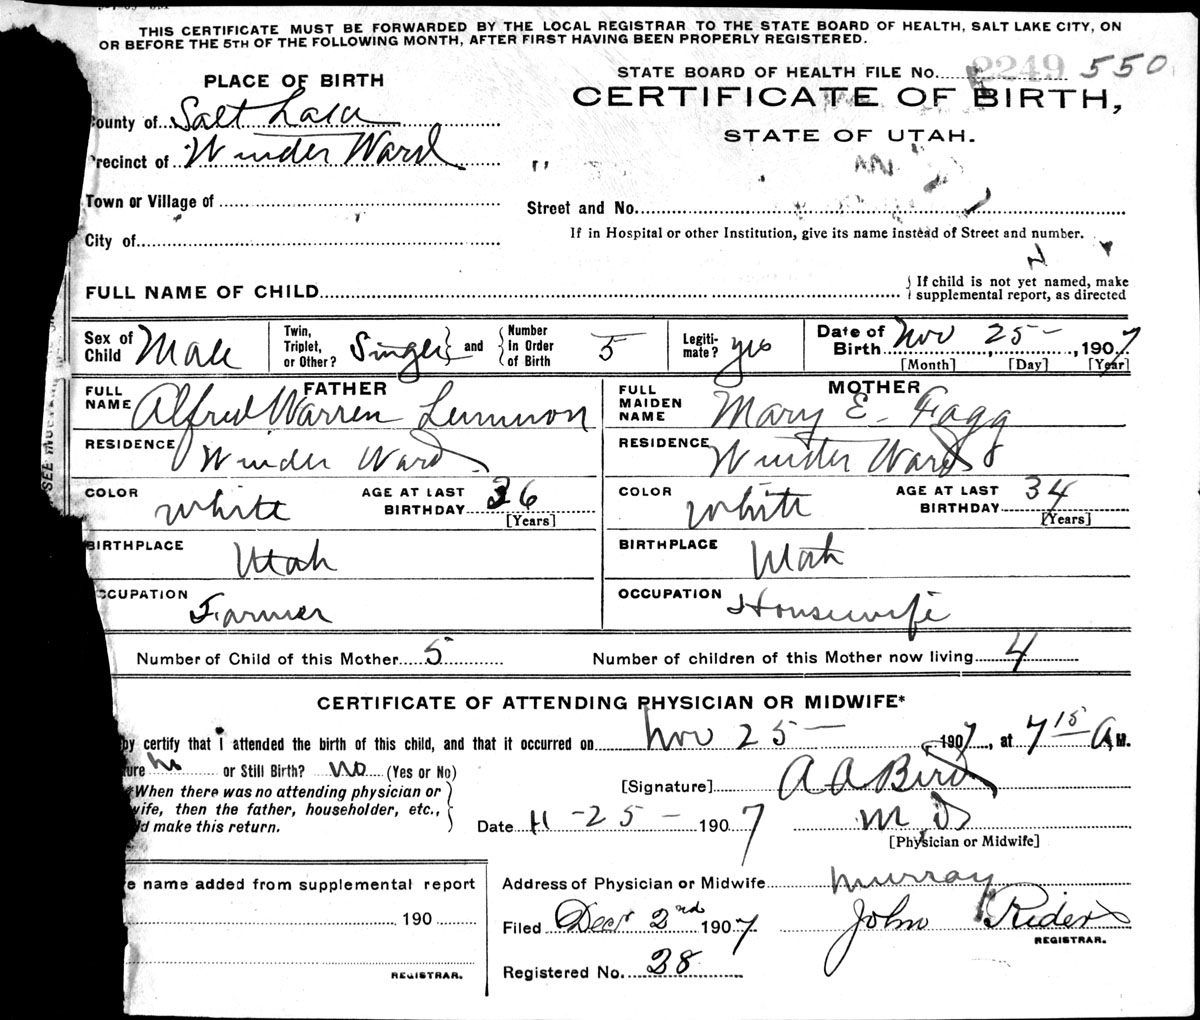 THIS CERTIFICATE MUST BE FORWARDED BY THE LOCAL REGISTRAR TO THE STATE BOARD OF HEALTH, SALT LAKE CITY, ON
OR BEFORE THE 5TH OF THE FOLLOWING MONTH, AFTER FIRST HAVING BEEN PROPERLY REGISTERED.
STATE BOARD OF HEALTH FILE No. 2249 550
PLACE OF BIRTH
CERTIFICATE OF BIRTH,
STATE OF UTAH.
ounty of Salt Lake
recinct of Winder Ward
Town or Village of
Street and No.
City of
If in Hospital or other Institution, give its name instead of Street and number.
FULL NAME OF CHILD
If child is not yet named, make
supplemental report, as directed
Sex of Child Male
Twin, Triplet, or Other? Single and Number In Order of Birth 5
Legiti-mate? yes
Date of Birth Nov 25 - , 1907
[Month] [Day] [Year]
FATHER
FULL NAME Alfred Warren Lemmon
RESIDENCE Winder Ward
COLOR White AGE AT LAST BIRTHDAY 36
[Years]
BIRTHPLACE Utah
OCCUPATION Farmer
MOTHER
FULL MAIDEN NAME Mary E. Fagg
RESIDENCE Winder Ward
COLOR White AGE AT LAST BIRTHDAY 34
[Years]
BIRTHPLACE Utah
OCCUPATION Housewife
Number of Child of this Mother 5 Number of children of this Mother now living 4
CERTIFICATE OF ATTENDING PHYSICIAN OR MIDWIFE*
by certify that I attended the birth of this child, and that it occurred on Nov 25 - 1907, at 7 15 A.M.
ure no or Still Birth? no (Yes or No)
[Signature] A A Bird
*When there was no attending physician or
wife, then the father, householder, etc.,
ld make this return.
Date 11 - 25 - 1907 M.D.
[Physician or Midwife]
e name added from supplemental report
190
REGISTRAR.
Address of Physician or Midwife Murray
Filed Dec 2nd 1907 John Rider
REGISTRAR.
Registered No. 38